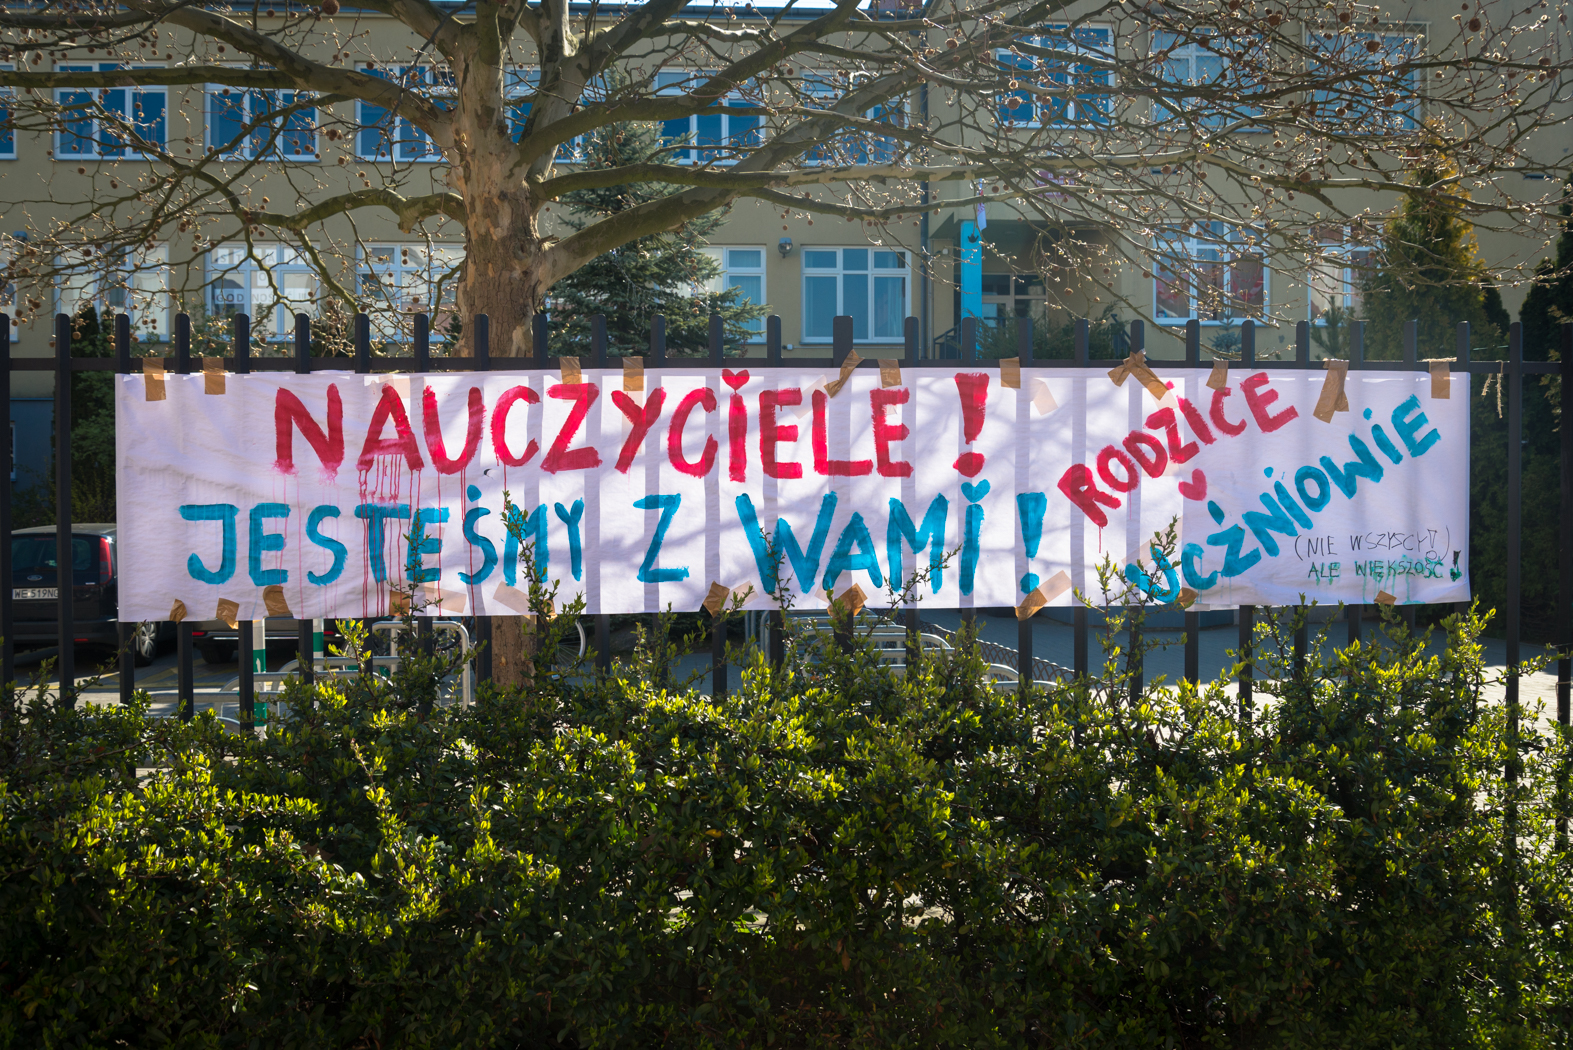 NAUCZYCIELE!
JESTEŚMY Z WAMI!
RODZICE
UCZŹNIOWIE
(NIE WSZYSCY!)
ALE WIĘKSZOŚĆ!